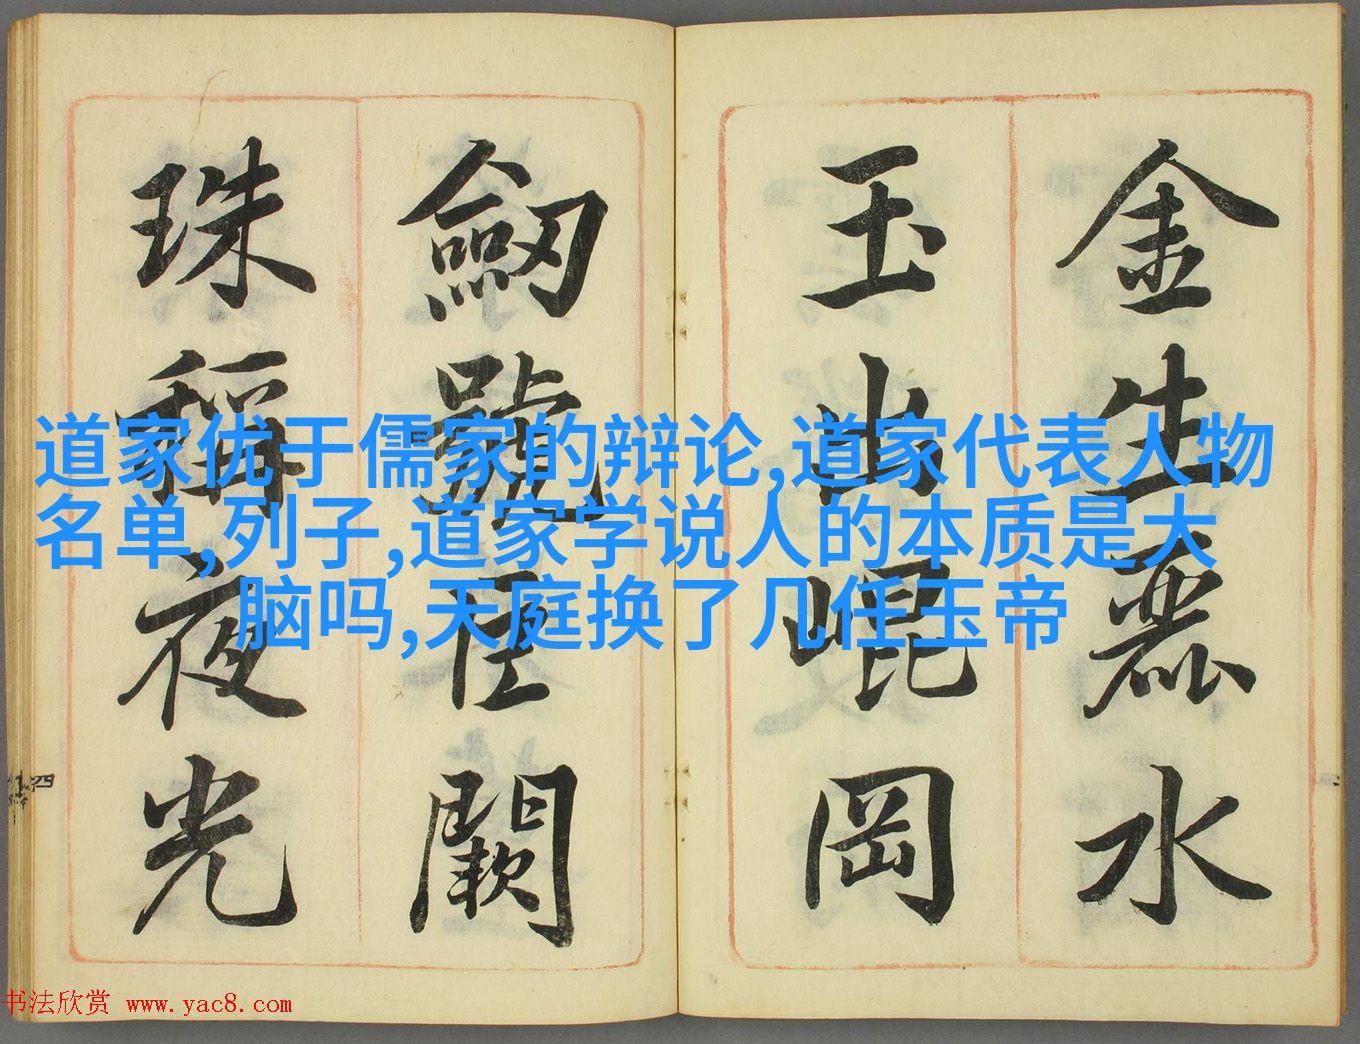 金生麗水
玉出崐岡
劒號巨闕
珠稱夜光
道家优于儒家的辩论,道家代表人物
名单,列子,道家学说人的本质是大
脑吗,天庭换了几任玉帝
书法欣赏 www.yac8.com